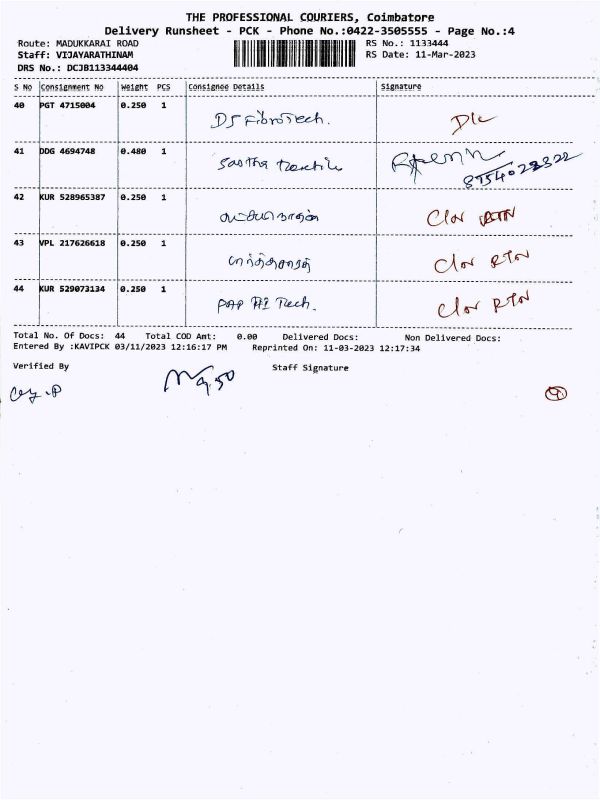 THE PROFESSIONAL COURIERS, Coimbatore
Delivery Runsheet - PCK - Phone No.:0422-3505555 - Page No.:4
Route: MADUKKARAI ROAD RS No.: 1133444
Staff: VIJAYARATHINAM RS Date: 11-Mar-2023
DRS No.: DCJB113344404
S No Consignment No Weight PCS Consignee Details Signature
40 PGT 4715004 0.250 1 DJ FibroTech. D/c
41 DDG 4694748 0.480 1 Textile
42 KUR 528965387 0.250 1 RTN
43 VPL 217626618 0.250 1 RTN
44 KUR 529073134 0.250 1 PAP HI Tech. RTN
Total No. Of Docs: 44 Total COD Amt: 0.00 Delivered Docs: Non Delivered Docs:
Entered By :KAVIPCK 03/11/2023 12:16:17 PM Reprinted On: 11-03-2023 12:17:34
Verified By Staff Signature
9.50